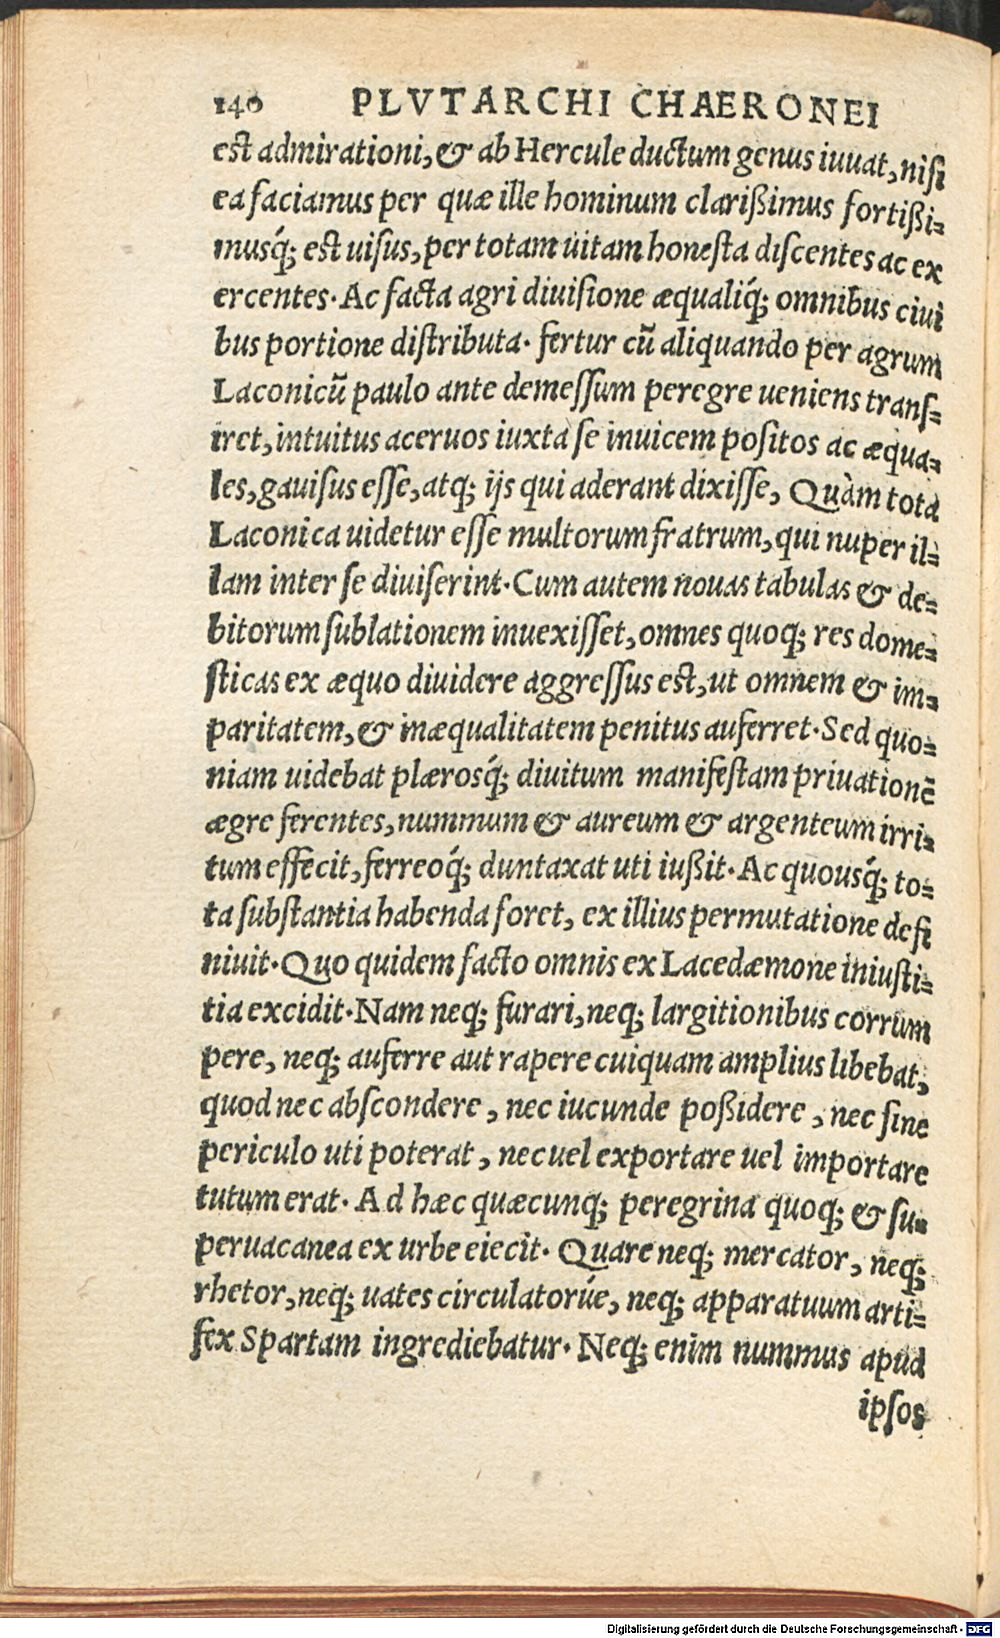 140 PLVTARCHI CHAERONEI
est admirationi, & ab Hercule ductum genus iuuat, nisi
ea faciamus per quæ ille hominum clarißimus fortißi-
musq́; est uisus, per totam uitam honesta discentes ac ex
ercentes. Ac facta agri diuisione æqualiq́; omnibus ciui
bus portione distributa. fertur cū aliquando per agrum
Laconicū paulo ante demessum peregre ueniens trans-
iret, intuitus aceruos iuxta se inuicem positos ac æqua-
les, gauisus esse, atq; ijs qui aderant dixisse, Quàm tota
Laconica uidetur esse multorum fratrum, qui nuper il-
lam inter se diuiserint. Cum autem nouas tabulas & de-
bitorum sublationem inuexisset, omnes quoq; res dome-
sticas ex æquo diuidere aggressus est, ut omnem & im-
paritatem, & inæqualitatem penitus auferret. Sed quo-
niam uidebat plærosq́; diuitum manifestam priuationē
ægre ferentes, nummum & aureum & argenteum irri-
tum effecit, ferreoq́; duntaxat uti iußit. Ac quousq́; to-
ta substantia habenda foret, ex illius permutatione defi
niuit. Quo quidem facto omnis ex Lacedæmone iniusti-
tia excidit. Nam neq; furari, neq; largitionibus corrum
pere, neq; auferre aut rapere cuiquam amplius libebat,
quod nec abscondere, nec iucunde poßidere, nec sine
periculo uti poterat, nec uel exportare uel importare
tutum erat. Ad hæc quæcunq; peregrina quoq; & su-
peruacanea ex urbe eiecit. Quare neq; mercator, neq;
rhetor, neq; uates circulatorúe, neq; apparatuum arti-
fex Spartam ingrediebatur. Neq; enim nummus apud
ipsos
Digitalisierung gefördert durch die Deutsche Forschungsgemeinschaft - DFG